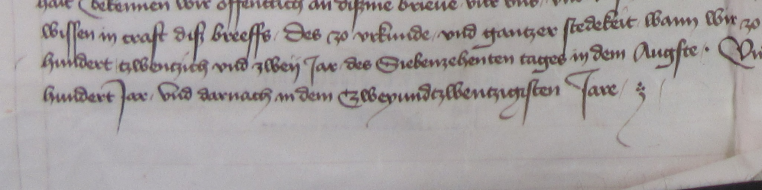 Bekennen wir offentlich an disme brieue
wissen in craft diß breeffs / Des zo vrkunde / vnd gantzer stedekeit / wann wir zo
hundert tzwentzich vnd zwey Jar des Siebenzehenten tages in dem Augste ·
hundert Jar / vnd darnach in dem Czweyundtzwentzigisten Jare /